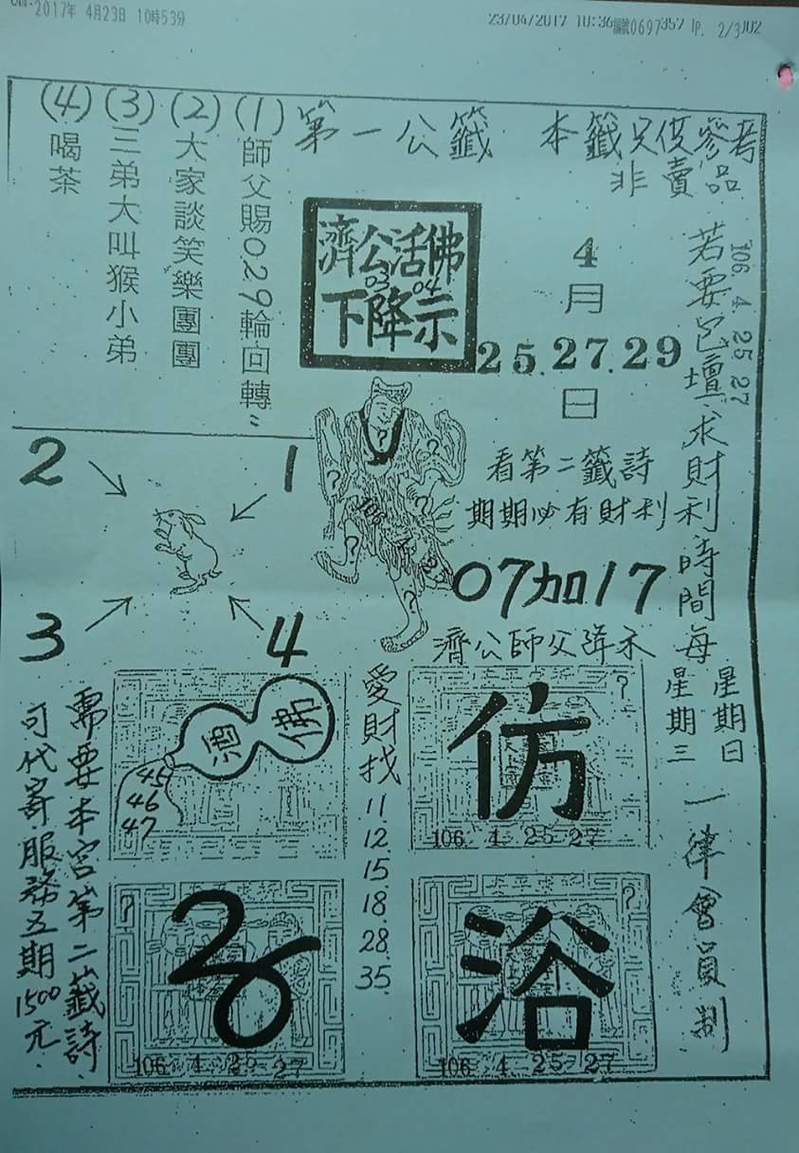 2017年 4月23日 10時53分
23/04/2017 10:36
0697357
P. 2/3
第一公籤
本籤只供參考
非賣品
(1)師父賜0.29輪回轉
(2)大家談笑樂團團
(3)三弟大叫猴小弟
(4)喝茶
濟公活佛
03 04
下降示
4
月
25.27.29
日
106 4. 25 27
若要包壇求財利時間每
星期日
星期三
一律會員制
看第二籤詩
期期必有財利
07加17
濟公師父降示
2
1
3
4
愛財找
11
12
15
18
28
35
佛
酒
45
46
47
仿
106 4 25 27
浴
106 4 25 27
106 4 25 27
需要本宮第二籤詩
可代寄.服務五期
1500元.